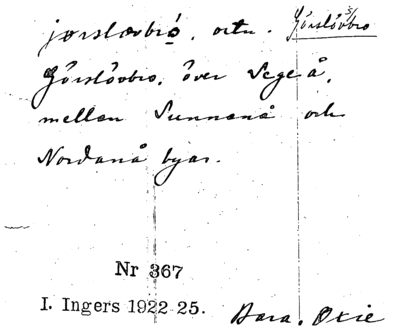 jørslǫvbró, ortn. Görslövbro
Görslövbro, över Segeå,
mellan Sunnanå och
Nordanå byar.
Nr 367
I. Ingers 1922 25.
Bara. Oxie